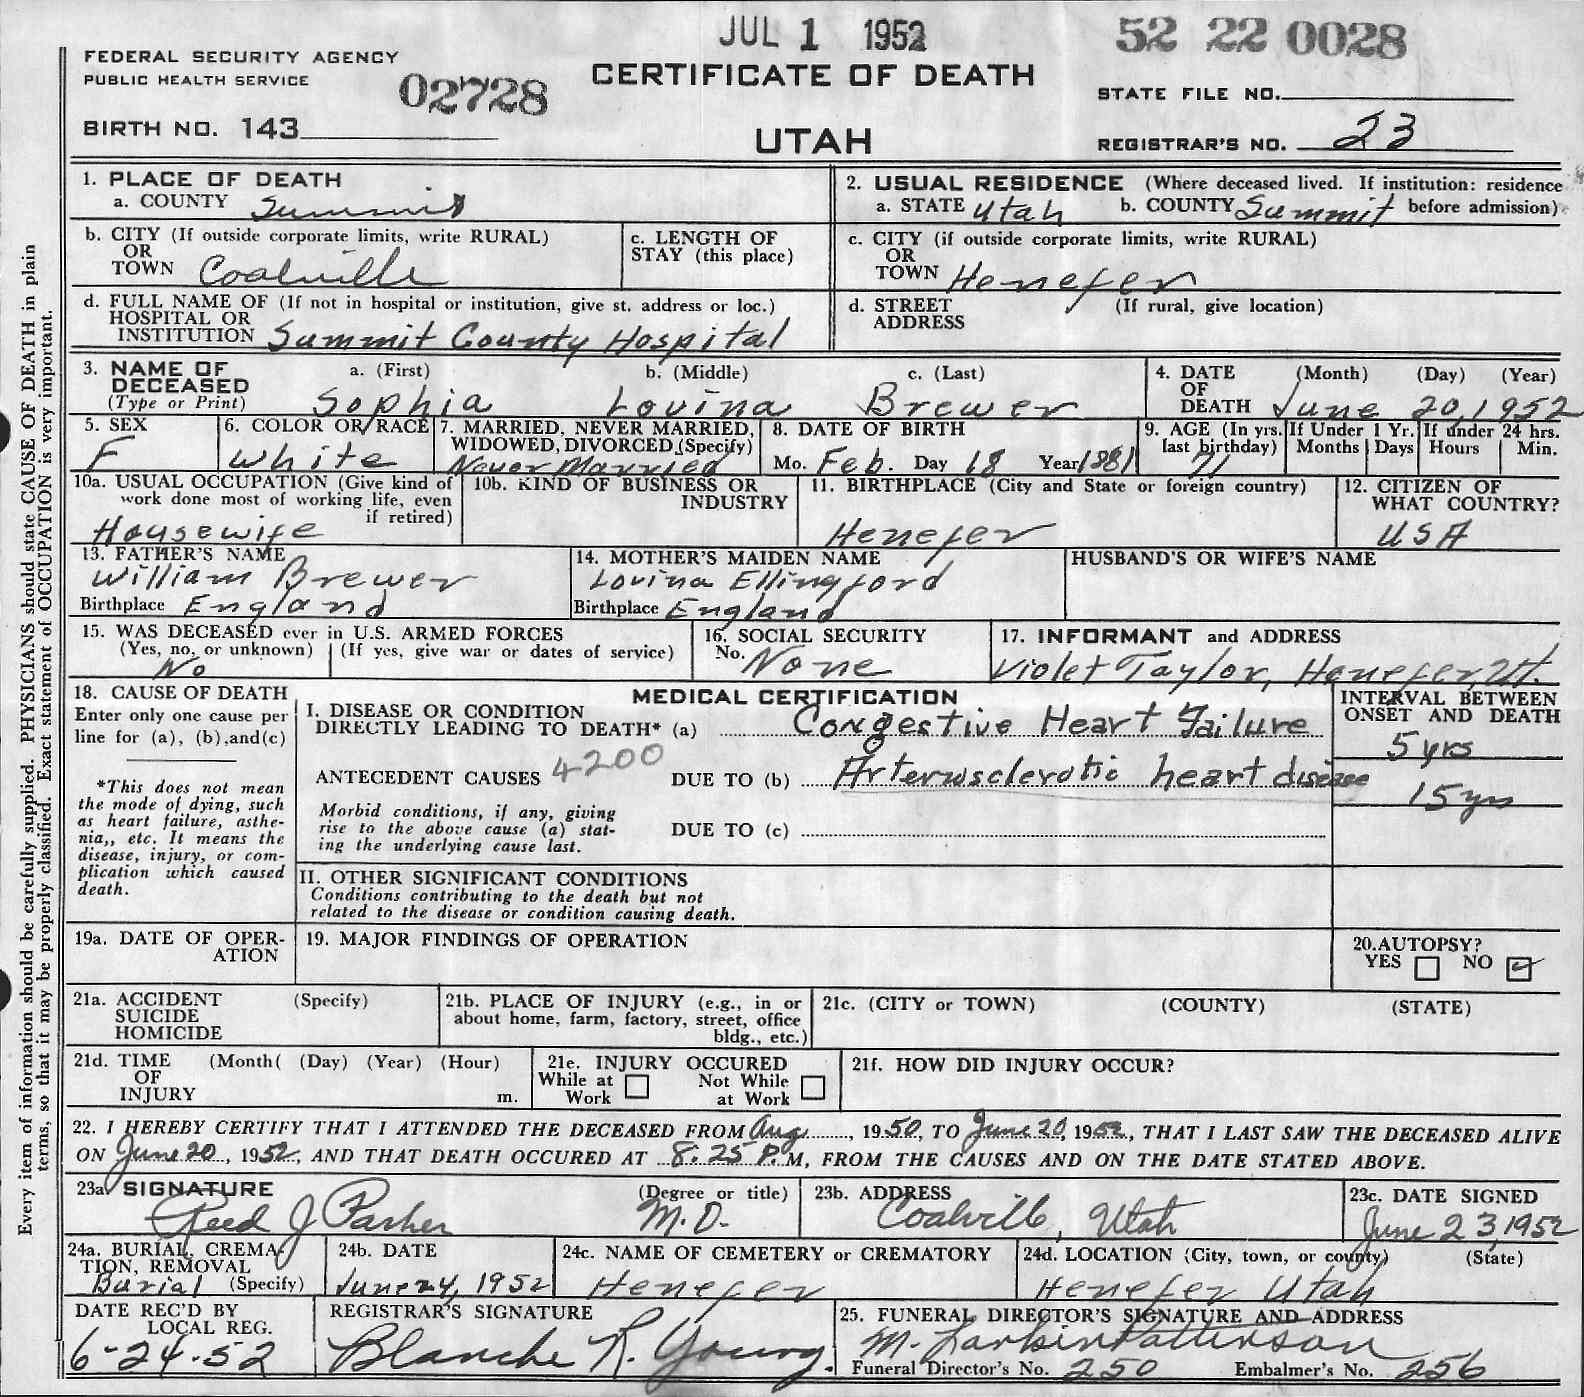 JUL 1 1952
52 22 0028
FEDERAL SECURITY AGENCY
PUBLIC HEALTH SERVICE
02728
CERTIFICATE OF DEATH
STATE FILE NO.
BIRTH NO. 143
UTAH
REGISTRAR'S NO. 23
1. PLACE OF DEATH
a. COUNTY Summit
2. USUAL RESIDENCE (Where deceased lived. If institution: residence
a. STATE Utah b. COUNTY Summit before admission)
b. CITY (If outside corporate limits, write RURAL)
OR
TOWN Coalville
c. LENGTH OF
STAY (this place)
c. CITY (if outside corporate limits, write RURAL)
OR
TOWN Henefer
d. FULL NAME OF (If not in hospital or institution, give st. address or loc.)
HOSPITAL OR
INSTITUTION Summit County Hospital
d. STREET (If rural, give location)
ADDRESS
3. NAME OF a. (First) b. (Middle) c. (Last)
DECEASED
(Type or Print) Sophia Lovina Brewer
4. DATE (Month) (Day) (Year)
OF
DEATH June 20, 1952
5. SEX
F
6. COLOR OR RACE
White
7. MARRIED, NEVER MARRIED,
WIDOWED, DIVORCED (Specify)
Never Married
8. DATE OF BIRTH
Mo. Feb. Day 18 Year 1881
9. AGE (In yrs.
last birthday)
71
If Under 1 Yr.
Months Days
If under 24 hrs.
Hours Min.
10a. USUAL OCCUPATION (Give kind of
work done most of working life, even
if retired)
Housewife
10b. KIND OF BUSINESS OR
INDUSTRY
11. BIRTHPLACE (City and State or foreign country)
Henefer
12. CITIZEN OF
WHAT COUNTRY?
USA
13. FATHER'S NAME
William Brewer
Birthplace England
14. MOTHER'S MAIDEN NAME
Lovina Ellingford
Birthplace England
HUSBAND'S OR WIFE'S NAME
15. WAS DECEASED ever in U.S. ARMED FORCES
(Yes, no, or unknown) (If yes, give war or dates of service)
No
16. SOCIAL SECURITY
No. None
17. INFORMANT and ADDRESS
Violet Taylor, Henefer, Ut.
18. CAUSE OF DEATH
Enter only one cause per
line for (a), (b),and(c)
*This does not mean
the mode of dying, such
as heart failure, asthe-
nia,, etc. It means the
disease, injury, or com-
plication which caused
death.
MEDICAL CERTIFICATION
I. DISEASE OR CONDITION
DIRECTLY LEADING TO DEATH* (a) Congestive Heart Failure
ANTECEDENT CAUSES 4200 DUE TO (b) Arteriosclerotic heart disease
Morbid conditions, if any, giving
rise to the above cause (a) stat-
ing the underlying cause last.
DUE TO (c)
INTERVAL BETWEEN
ONSET AND DEATH
5 yrs
15 yrs
II. OTHER SIGNIFICANT CONDITIONS
Conditions contributing to the death but not
related to the disease or condition causing death.
19a. DATE OF OPER-
ATION
19. MAJOR FINDINGS OF OPERATION
20.AUTOPSY?
YES NO
21a. ACCIDENT (Specify)
SUICIDE
HOMICIDE
21b. PLACE OF INJURY (e.g., in or
about home, farm, factory, street, office
bldg., etc.)
21c. (CITY or TOWN) (COUNTY) (STATE)
21d. TIME (Month( (Day) (Year) (Hour)
OF
INJURY m.
21e. INJURY OCCURED
While at Not While
Work at Work
21f. HOW DID INJURY OCCUR?
22. I HEREBY CERTIFY THAT I ATTENDED THE DECEASED FROM Aug, 1950, TO June 20, 1952, THAT I LAST SAW THE DECEASED ALIVE
ON June 20, 1952, AND THAT DEATH OCCURED AT 8:25 P.M, FROM THE CAUSES AND ON THE DATE STATED ABOVE.
23a. SIGNATURE (Degree or title)
Reed J Parker M.D.
23b. ADDRESS
Coalville, Utah
23c. DATE SIGNED
June 23, 1952
24a. BURIAL, CREMA-
TION, REMOVAL
Burial (Specify)
24b. DATE
June 24, 1952
24c. NAME OF CEMETERY or CREMATORY
Henefer
24d. LOCATION (City, town, or county) (State)
Henefer Utah
DATE REC'D BY
LOCAL REG.
6-24-52
REGISTRAR'S SIGNATURE
Blanche R. Young.
25. FUNERAL DIRECTOR'S SIGNATURE AND ADDRESS
M. Larkin Patterson
Funeral Director's No. 250 Embalmer's No. 256
Every item of information should be carefully supplied. PHYSICIANS should state CAUSE OF DEATH in plain
terms, so that it may be properly classified. Exact statement of OCCUPATION is very important.